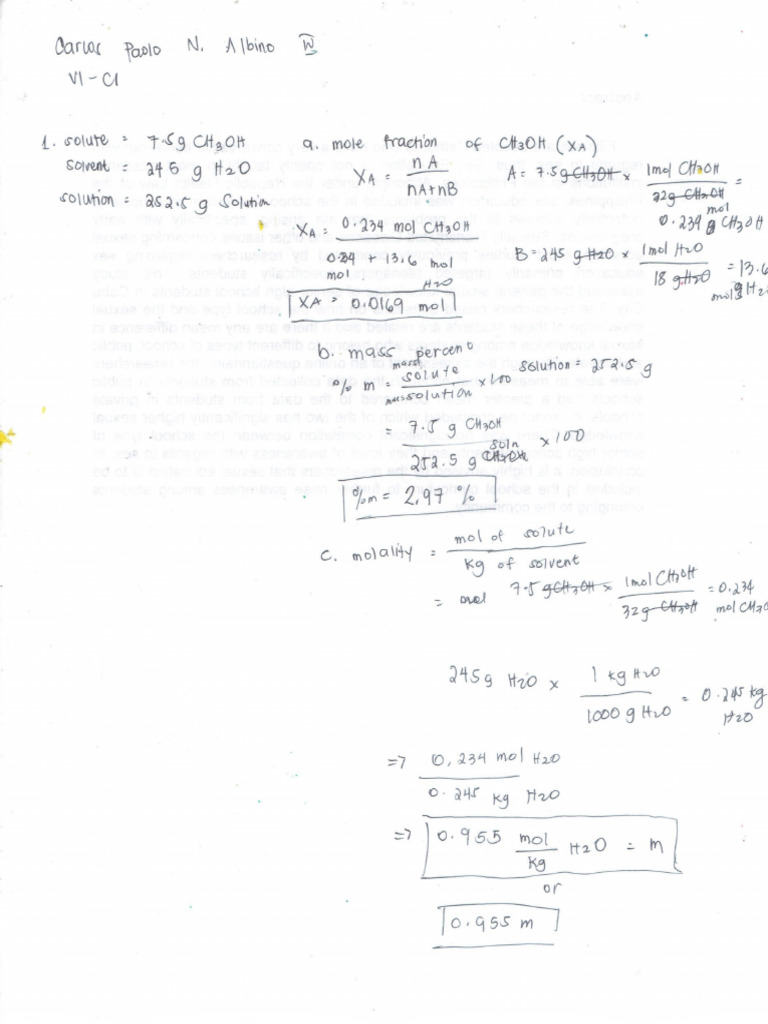 Carlos Paolo N. Albino IV
VI - C1
1. solute = 7.5g CH3OH
solvent = 245 g H2O
solution = 252.5 g Solution
a. mole fraction of CH3OH (XA)
XA = nA / nA+nB
A = 7.5g CH3OH × 1mol CH3OH / 32g CH3OH =
0.234 mol CH3OH
XA = 0.234 mol CH3OH / 0.234 mol + 13.6 mol H2O
B = 245 g H2O × 1mol H2O / 18 g H2O = 13.6
mols H2
XA = 0.0169 mol
b. mass percent
% m = mass solute / mass solution × 100
solution = 252.5 g
= 7.5 g CH3OH / 252.5 g soln × 100
%m = 2.97 %
c. molality = mol of solute / kg of solvent
= 7.5 gCH3OH × 1mol CH3OH / 32g CH3OH = 0.234
mol CH3O
245g H2O × 1 kg H2O / 1000 g H2O = 0.245 kg
H2O
=> 0.234 mol H2O / 0.245 kg H2O
=> 0.955 mol/kg H2O = m
or
0.955 m